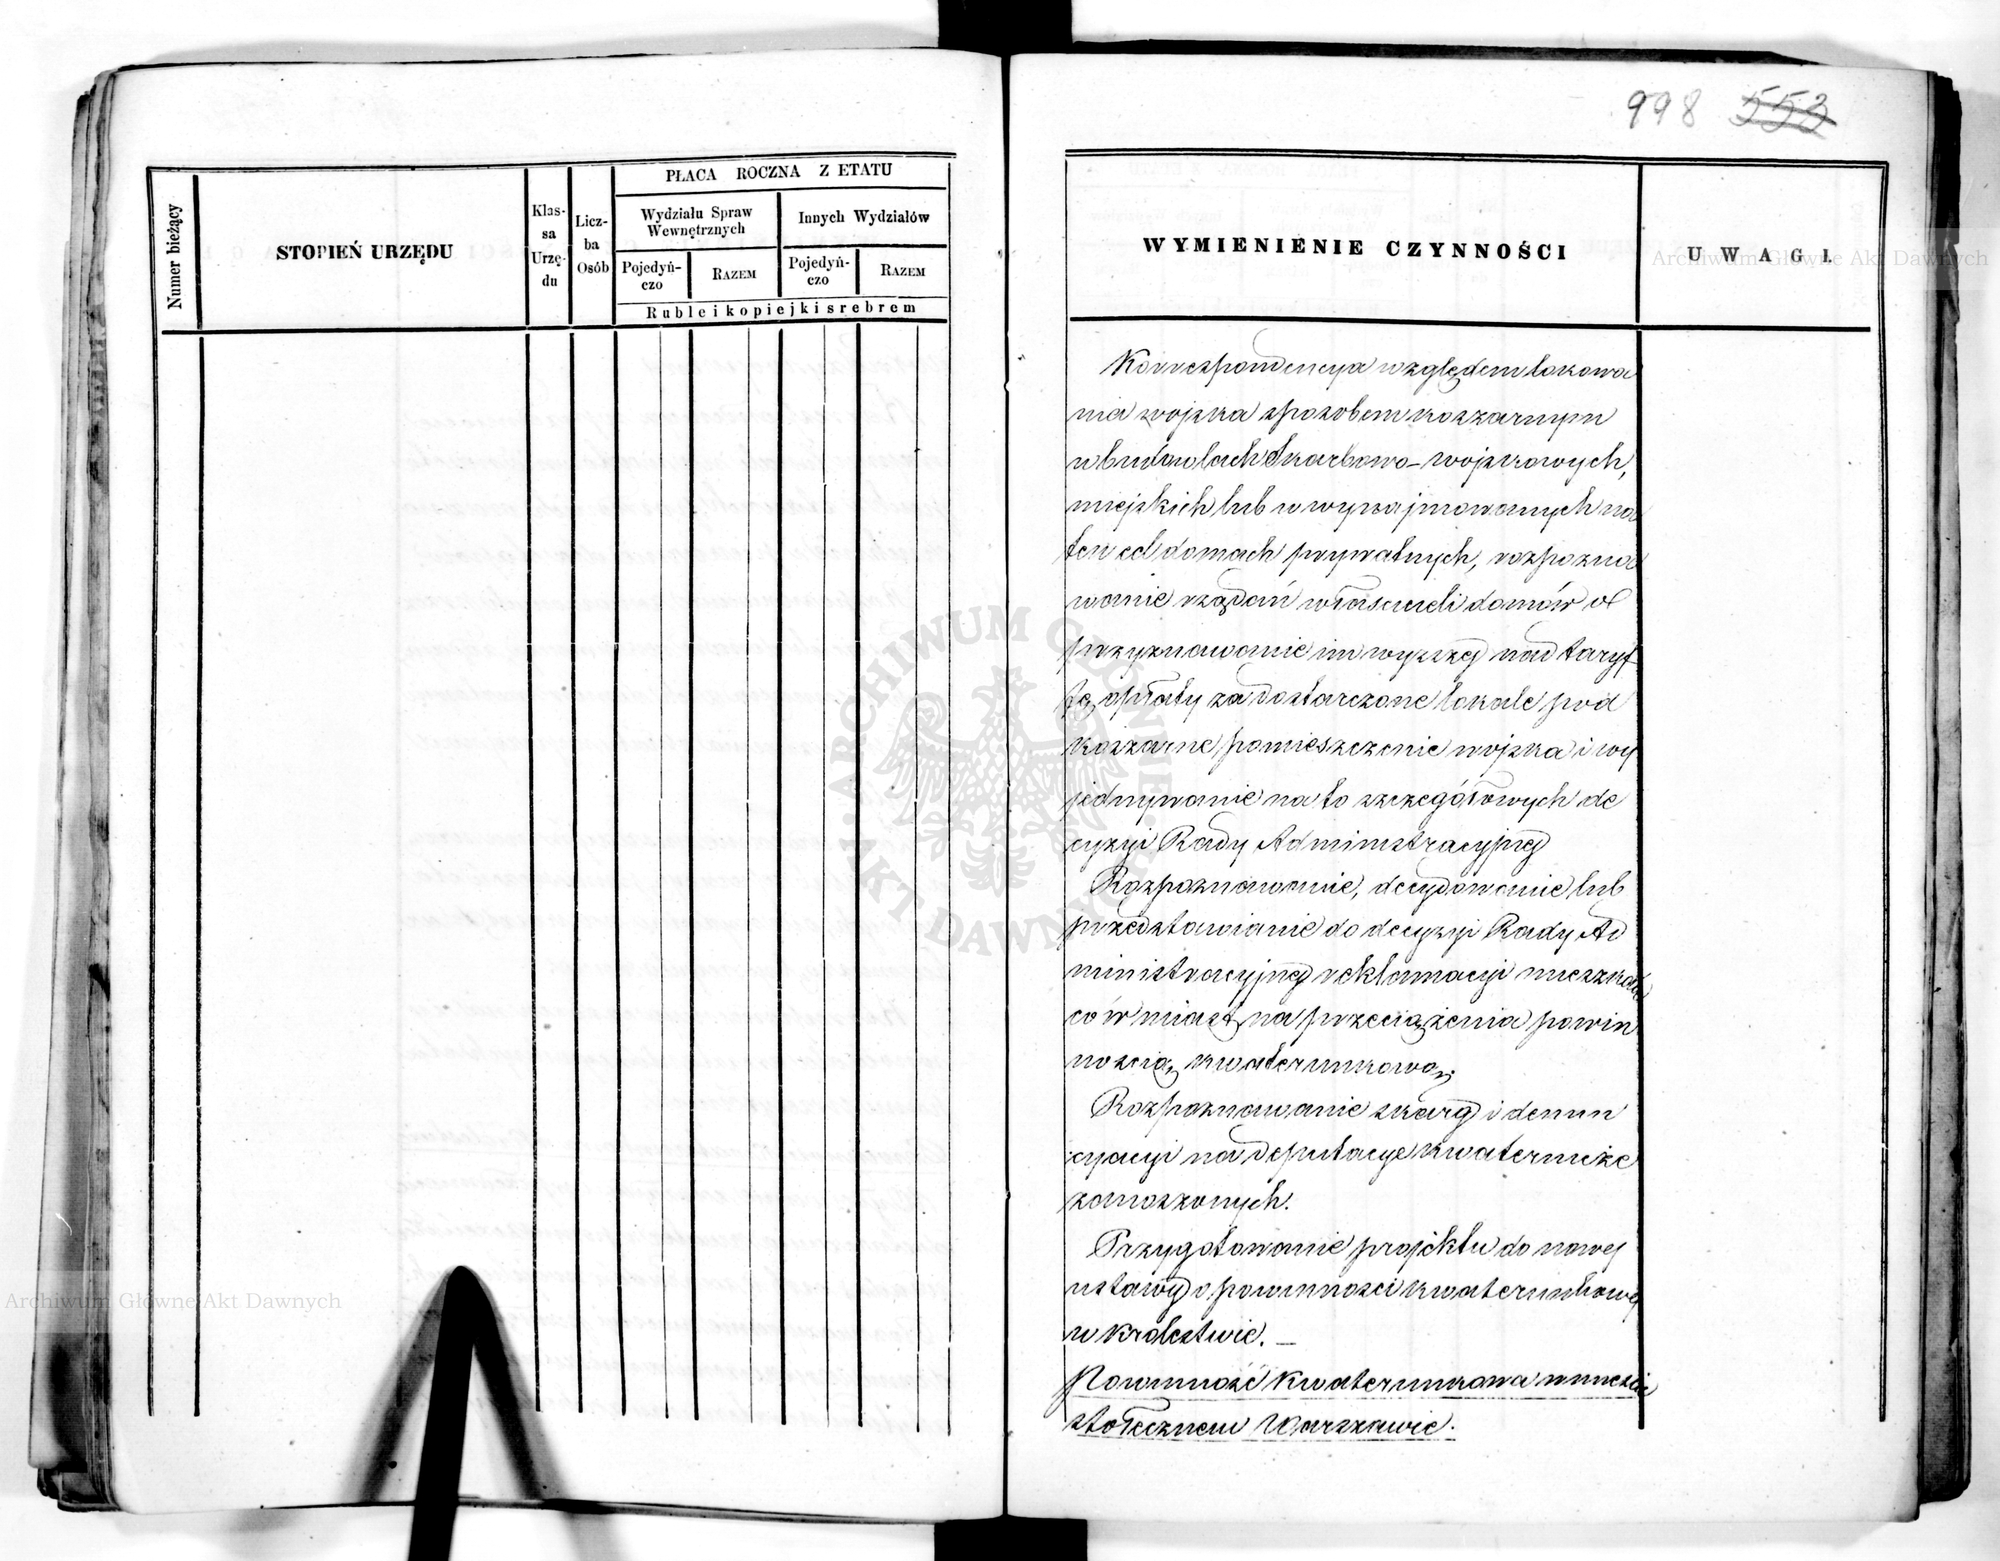 998 553
Numer bieżący
STOPIEŃ URZĘDU
Klas-
sa
Urzę-
du
Licz-
ba
Osób
PŁACA ROCZNA Z ETATU
Wydziału Spraw
Wewnętrznych
Innych Wydziałów
Pojedyń-
czo
RAZEM
Pojedyń-
czo
RAZEM
Ruble i kopiejki srebrem
WYMIENIENIE CZYNNOŚCI
UWAGI.
Korrespondencya względem lokowa
nia wojska sposobem koszarnym
w budowlach Skarbowo-wojskowych,
miejskich lub w wynajmowanych na
ten cel domach prywatnych, rozpozna
wanie rządań właścicieli domów o
przyznawanie im wyższej nad taryf
fę opłaty za dostarczone lokale pod
koszarne pomieszczenie wojska i wy
jednywanie na to szczegółowych de
cyzyi Rady Administracyjnej
Rozpoznawanie, decydowanie lub
przedstawianie do decyzyi Rady Ad
ministracyjnej reklamacyi mieszkań
ców miast na przeciążenia powin
nością kwaterunkową.
Rozpoznawanie skarg i denun
cyacyi na deputacye kwaternicze
zanoszonych.
Przygotowanie projektu do nowej
ustawy o powinności kwaterunkowej
w Królestwie. —
Powinność kwaterunkowa w mieście
stołecznem Warszawie.
Archiwum Główne Akt Dawnych
Archiwum Główne Akt Dawnych
ARCHIWUM GŁÓWNE AKT DAWNYCH